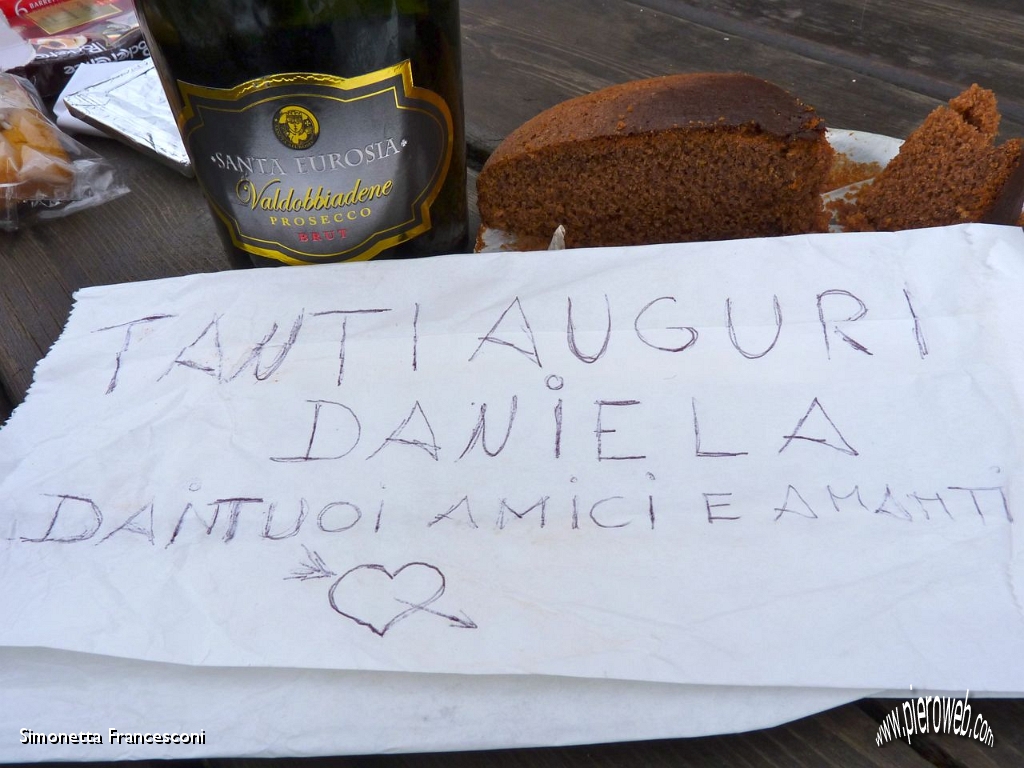 6 BARRE
SANTA EUROSIA
Valdobbiadene
PROSECCO
BRUT
TANTI AUGURI
DANIELA
DAI TUOI AMICI E AMANTI
Simonetta Francesconi
www.pieroweb.com